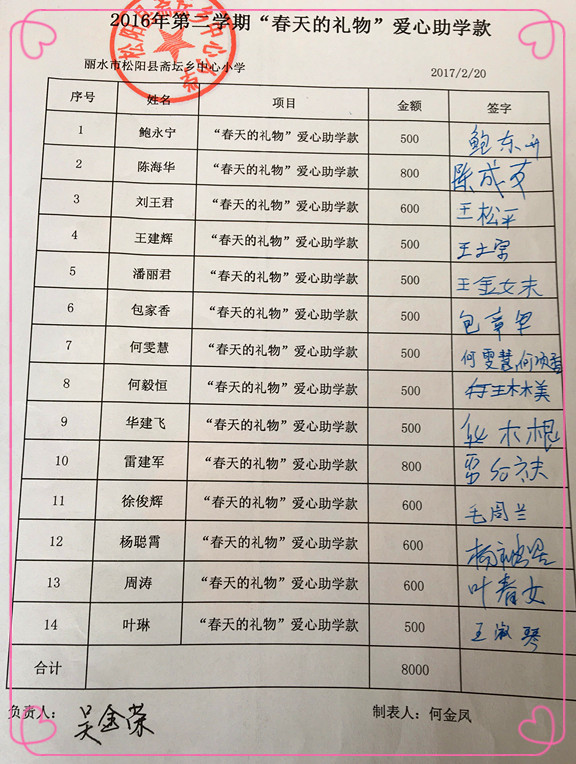 2016年第二学期“春天的礼物”爱心助学款
丽水市松阳县斋坛乡中心小学 2017/2/20
序号 姓名 项目 金额 签字
1 鲍永宁 “春天的礼物”爱心助学款 500 鲍东升
2 陈海华 “春天的礼物”爱心助学款 800 陈成
3 刘王君 “春天的礼物”爱心助学款 600 王松平
4 王建辉 “春天的礼物”爱心助学款 500 王土
5 潘丽君 “春天的礼物”爱心助学款 500 王金女
6 包家香 “春天的礼物”爱心助学款 400 包章
7 何雯慧 “春天的礼物”爱心助学款 500 何雯慧
8 何毅恒 “春天的礼物”爱心助学款 500
9 华建飞 “春天的礼物”爱心助学款 500 华木根
10 雷建军 “春天的礼物”爱心助学款 800
11 徐俊辉 “春天的礼物”爱心助学款 600 毛周兰
12 杨聪霄 “春天的礼物”爱心助学款 600
13 周涛 “春天的礼物”爱心助学款 600 叶春女
14 叶琳 “春天的礼物”爱心助学款 500 王淑琴
合计 8000
负责人： 吴金荣 制表人：何金凤